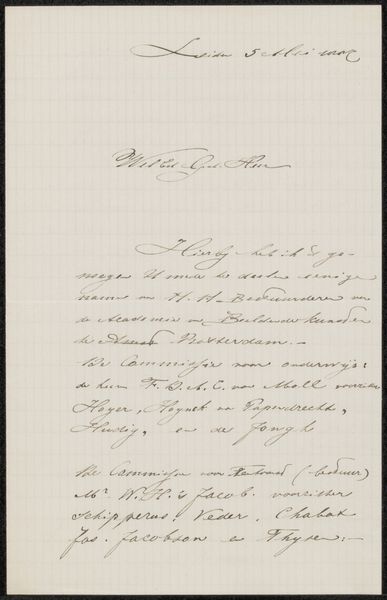 Leiden 5 Mei
Wel Ed. Geb. Heer
Hierbij heb ik 't ge-
noegen U mede te deelen eenige
namen van H. H. Bestuurderen van
de Academie van Beeldende kunsten
te Rotterdam. —
De Commissie voor onderwijs:
de heeren van Moll voorzitter
Hoyer, Hoynck van Papendrecht,
Hudig, en de Jongh
De Commissie voor (bestuur)
Mr. W. H. 's Jacob. voorzitter
Schipperus. Veder. Chabot
Jos. Jacobson en Thyse. —